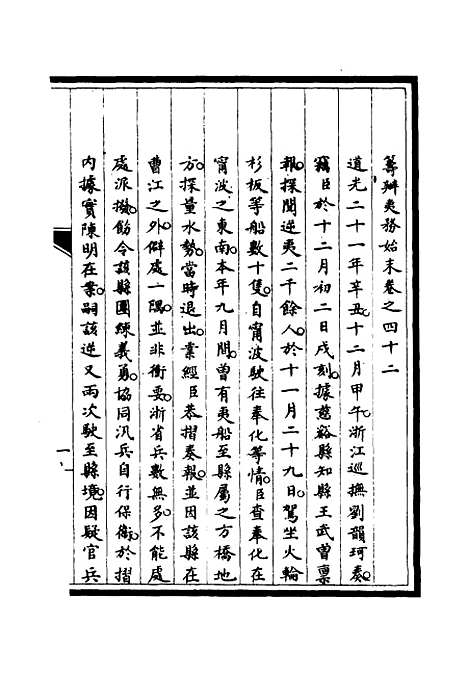 籌辦夷務始末卷之四十二
道光二十一年辛丑。十二月甲午。浙江巡撫劉韻珂奏。
竊臣於十二月初二日戌刻。據慈谿縣知縣王武曾稟
報。探聞逆夷二千餘人。於十一月二十九日。駕坐火輪
杉板等船數十隻。自甯波駛往奉化等情。臣查奉化在
甯波之東南。本年九月間。曾有夷船至縣屬之方橋地
方。探量水勢。當時退出。業經臣恭摺奏報。並因該縣在
曹江之外。僻處一隅。並非衝要。浙省兵數無多。不能處
處派撥。飭令該縣團練義勇。協同汛兵自行保衞。於摺
內據實陳明在案。嗣該逆又兩次駛至縣境。因疑官兵
一